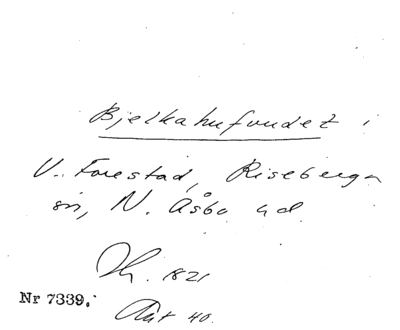 Bjelkahufundet i
V. Forestad, Riseberga
sn, N. Åsbo hd.
1821
Nr 7339.
Ant 40.